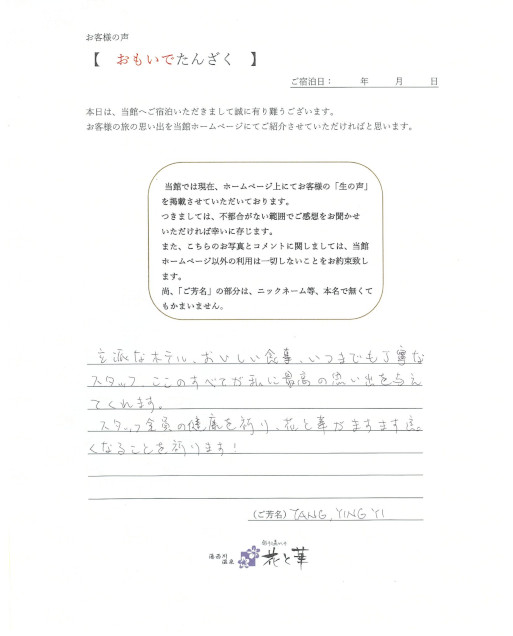 お客様の声
【 おもいでたんざく 】
ご宿泊日: 年 月 日
本日は、当館へご宿泊いただきまして誠に有り難うございます。
お客様の旅の思い出を当館ホームページにてご紹介させていただければと思います。
当館では現在、ホームページ上にてお客様の「生の声」
を掲載させていただいております。
つきましては、不都合がない範囲でご感想をお聞かせ
いただければ幸いに存じます。
また、こちらのお写真とコメントに関しましては、当館
ホームページ以外の利用は一切しないことをお約束致し
ます。
尚、「ご芳名」の部分は、ニックネーム等、本名で無くて
もかまいません。
立派なホテル、おいしい食事、いつまでも丁寧な
スタッフ、ここのすべてが私に最高の思い出を与え
てくれます。
スタッフ全員の健康を祈り、花と華がますます
くなることを祈ります!
(ご芳名) TANG, YING YI
湯西川
温泉
花と華